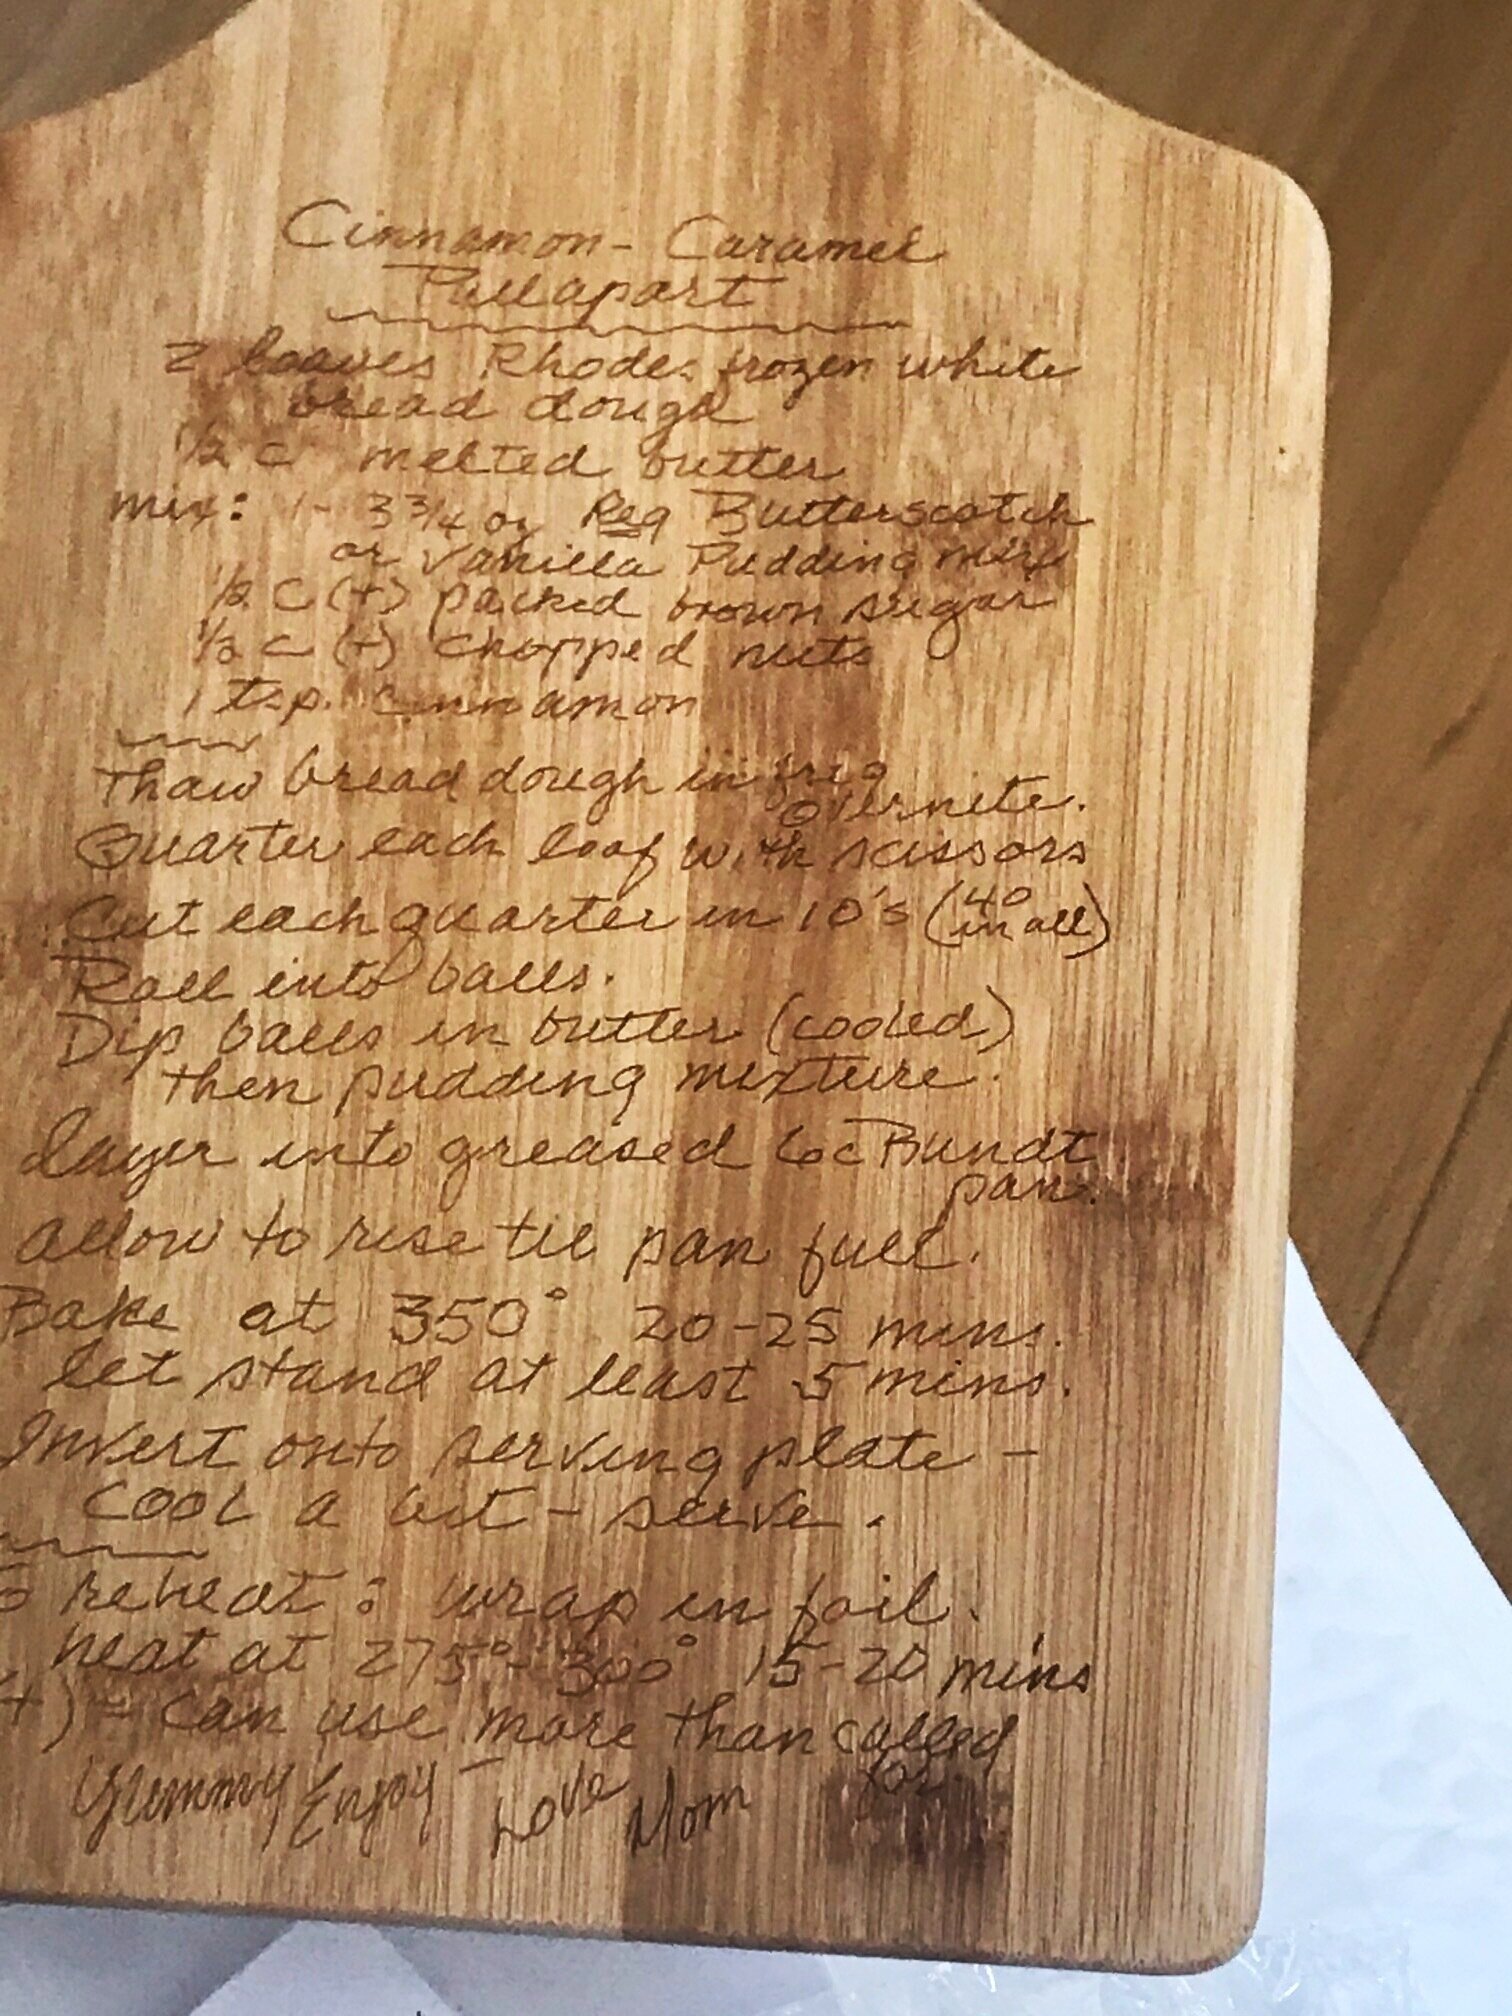 Cinnamon - Caramel
Pullapart
2 loaves Rhodes frozen white
bread dough
1/2 c melted butter
mix: 1 - 3 3/4 oz Reg Butterscotch
or Vanilla Pudding mix
1/2 c (+) packed brown sugar
1/2 c (+) chopped nuts
1 tsp. cinnamon
Thaw bread dough in freg
overnite.
Quarter each loaf with scissors
Cut each quarter in 10's (40 in all)
Roll into balls.
Dip balls in butter (cooled)
then pudding mixture.
Layer into greased 6c Bundt
pan.
allow to rise til pan full.
Bake at 350° 20-25 mins.
let stand at least 5 mins.
Invert onto serving plate -
cool a bit - serve.
o reheat: wrap in foil.
heat at 275°- 300° 15-20 mins
+) = can use more than called
for.
Yummy Enjoy - Love Mom